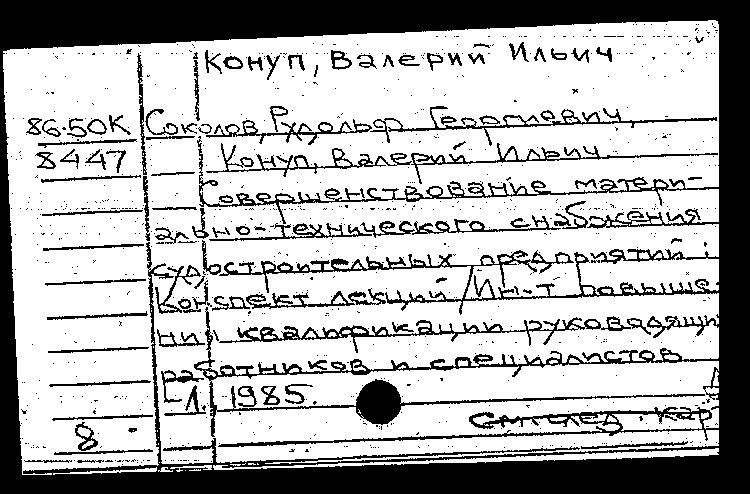 Конуп, Валерий Ильич
86-50К Соколов, Рудольф Георгиевич,
8447 Конуп, Валерий Ильич.
Совершенствование матери-
ально-технического снабжения
судостроительных предприятий:
Конспект лекций / Ин-т повыше-
ния квалификации руководящи
работников и специалистов
-Л., 1985.
8 См. след. кар